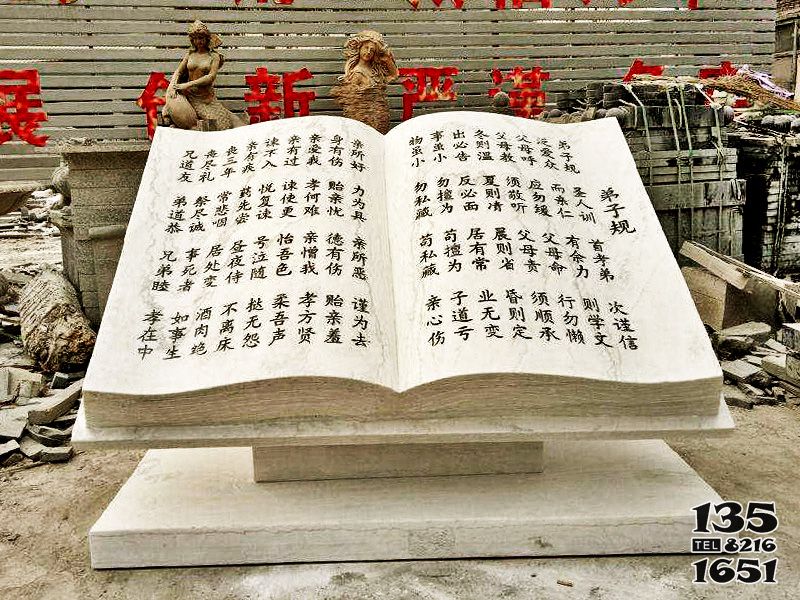 展 新 严谨
弟子规
弟子规 圣人训 首孝弟 次谨信
泛爱众 而亲仁 有余力 则学文
父母呼 应勿缓 父母命 行勿懒
父母教 须敬听 父母责 须顺承
冬则温 夏则清 晨则省 昏则定
出必告 反必面 居有常 业无变
事虽小 勿擅为 苟擅为 子道亏
物虽小 勿私藏 苟私藏 亲心伤
亲所好 力为具 亲所恶 谨为去
身有伤 贻亲忧 德有伤 贻亲羞
亲爱我 孝何难 亲憎我 孝方贤
亲有过 谏使更 怡吾色 柔吾声
谏不入 悦复谏 号泣随 挞无怨
亲有疾 药先尝 昼夜侍 不离床
丧三年 常悲咽 居处变 酒肉绝
丧尽礼 祭尽诚 事死者 如事生
兄道友 弟道恭 兄弟睦 孝在中
135
TEL &216
1651